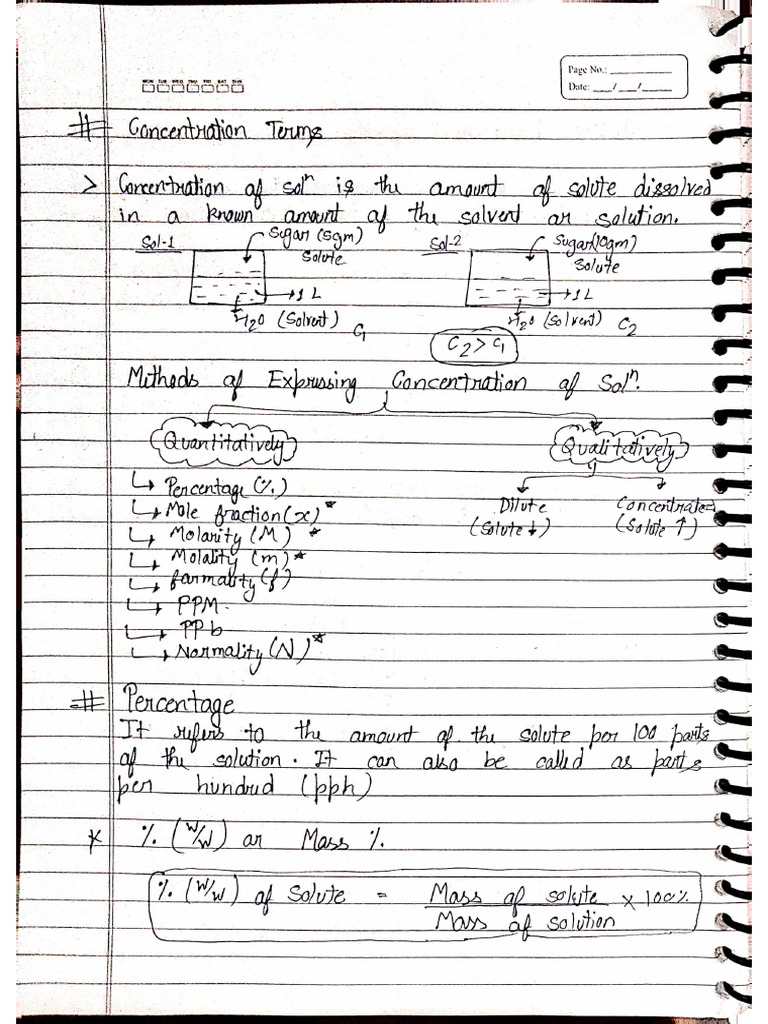 MON TUE WED THU FRI SAT SUN
Page No.: ___________
Date: ___/___/_____
# Concentration Terms
> Concentration of solⁿ is the amount of solute dissolved
in a known amount of the solvent or solution.
Sol-1 Sugar (5gm) Sol-2 Sugar (10gm)
Solute Solute
→1 L →1 L
H₂O (Solvent) C₁ H₂O (Solvent) C₂
C₂ > C₁
Methods of Expressing Concentration of Solⁿ.
Quantitatively Qualitatively
↳ Percentage (%)
↳ Mole fraction (x) *
↳ Molarity (M) *
↳ Molality (m) *
↳ formality (f)
↳ PPM
↳ PPb
↳ Normality (N) *
Dilute Concentrated
(Solute ↓) (Solute ↑)
# Percentage
It refers to the amount of the solute per 100 parts
of the solution. It can also be called as parts
per hundred (pph)
* % (W/W) or Mass %.
% (W/W) of Solute = Mass of solute × 100%
Mass of solution